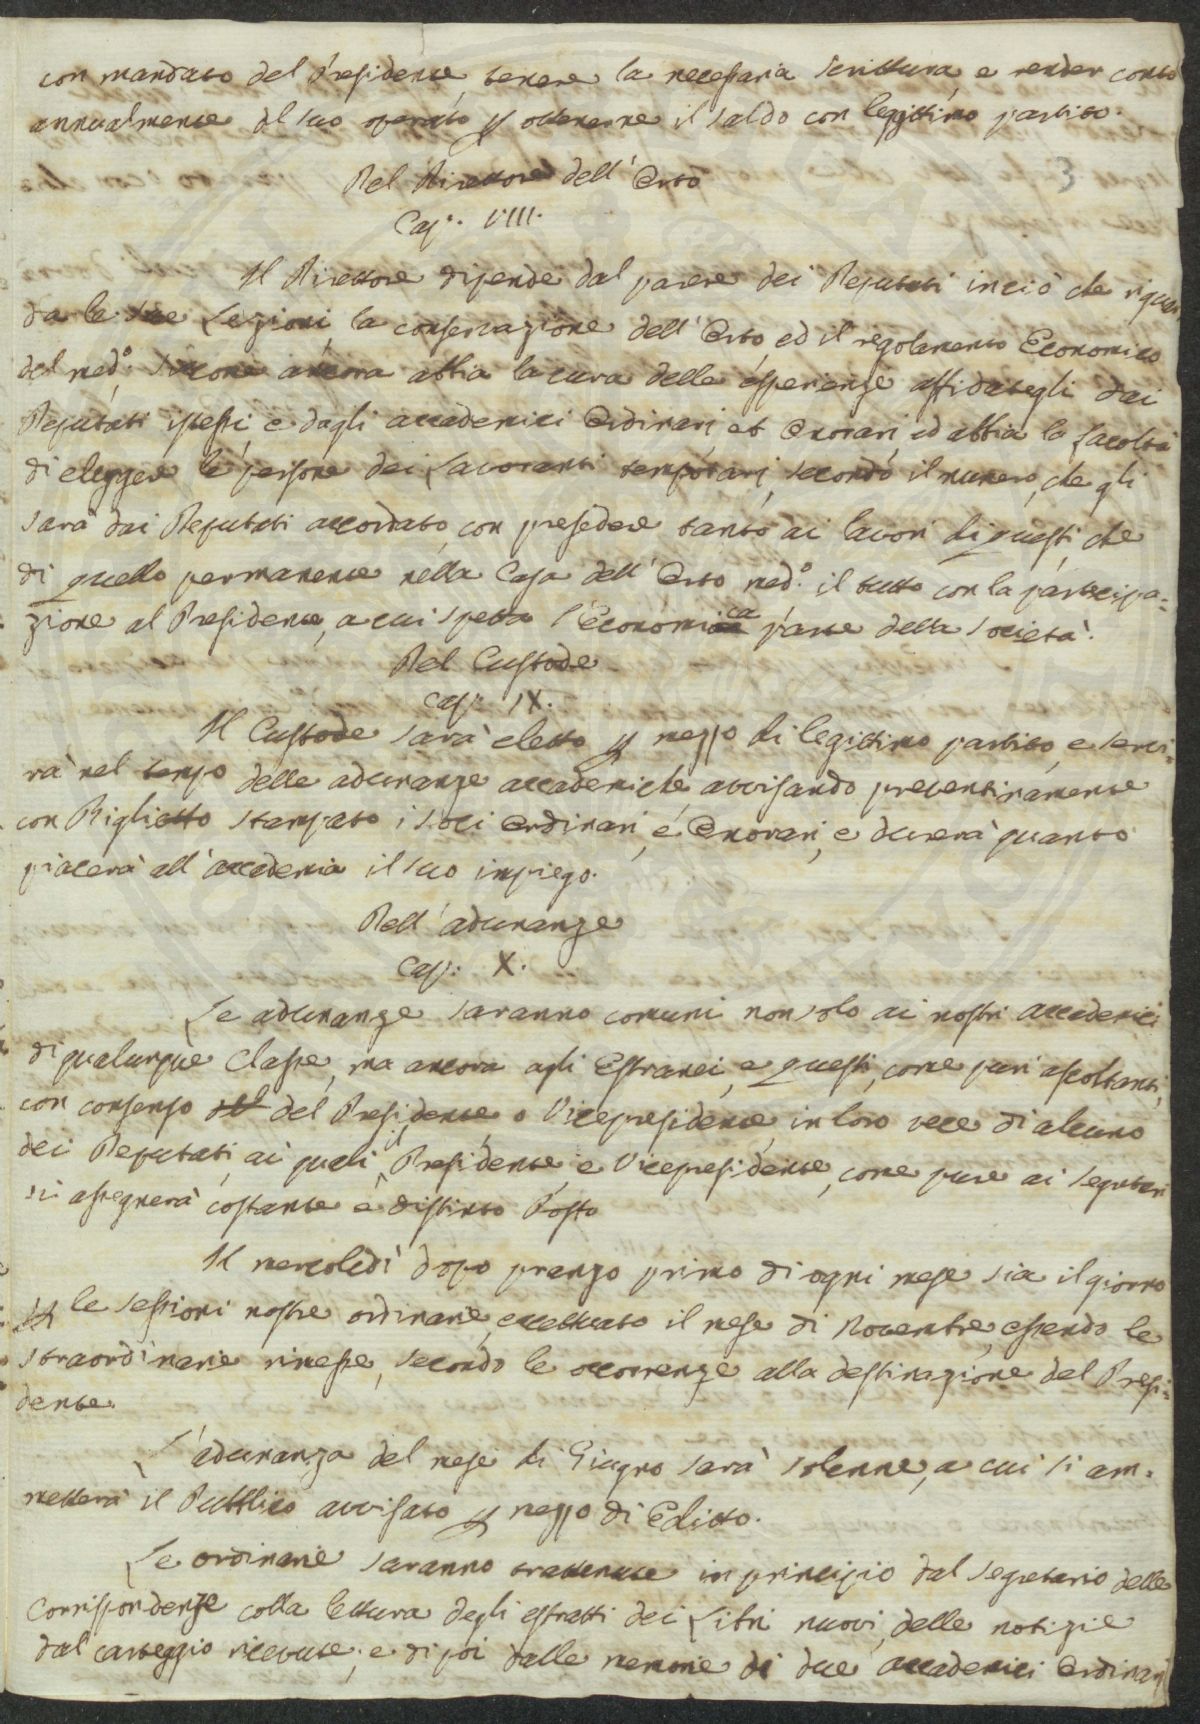 con mandato del Presidente, tenere la necessaria scrittura, e render conto
annualmente del suo operato p ottenerne il saldo con leggittimo partito.
3
Del Direttore dell' Orto
Cap. VIII.
Il Direttore dipende dal parere dei Deputati inciò che riguar
da le sue Lezioni, la conservazione dell' Orto, ed il regolamento Economico
del med.º siccome ancora abbia la cura delle esperienze affidategli dai
Deputati istessi, e dagli accademici Ordinari, et Onorari, ed abbia la facoltà
di eleggere le persone dei Lavoranti temporari, secondo il numero, che gli
sarà dai Deputati accordato, con presedere tanto ai lavori di questi, che
di quello permanente nella Casa dell' Orto med.º il tutto con la partecipa=
zione al Presidente, a cui spetta l'economica parte della Società.
Del Custode
Cap. IX.
Il Custode sarà eletto p mezzo di legittimo partito, e servi=
rà nel tempo delle adunanze accademiche avvisando preventivamente
con Biglietto stampato i soci Ordinari, e Onorari, e durerà quanto
piacerà all' accademia il suo impiego.
Dell' adunanze
Cap: X.
Le adunanze saranno comuni non solo ai nostri accademici
di qualunque Classe, ma ancora agli Estranei, e questi, come puri ascoltanti,
con consenso del Presidente o Vicepresidente, in loro vece di alcuno
dei Deputati, ai quali, il Presidente, e Vicepresidente, come pure ai Segretari
si assegnerà costante e distinto Posto
Il mercoledì dopo pranzo primo di ogni mese sia il giorno
p le sessioni nostre ordinarie, eccettuato il mese di Novembre, essendo le
straordinarie rimesse, secondo le occorrenze alla destinazione del Presi=
dente.
L'adunanza del mese di Giugno sarà solenne, a cui si am=
metterà il Pubblico avvisato p mezzo di Editto.
Le ordinarie saranno trattenute in principio dal Segretario delle
Corrispondenze colla lettura degli estratti dei Libri nuovi, delle notizie
dal carteggio ricevute; e di poi dalle memorie di due accademici Ordinari